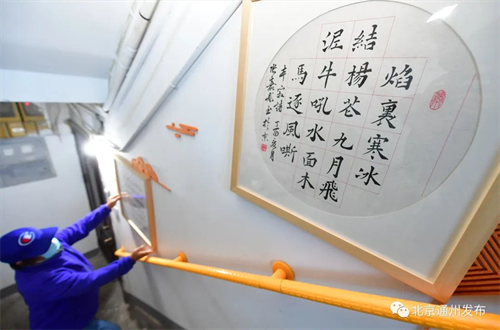 焰裏寒冰
結楊花九月飛
泥牛吼水面木
馬逐風嘶
本寂诗 丁酉
北京通州发布